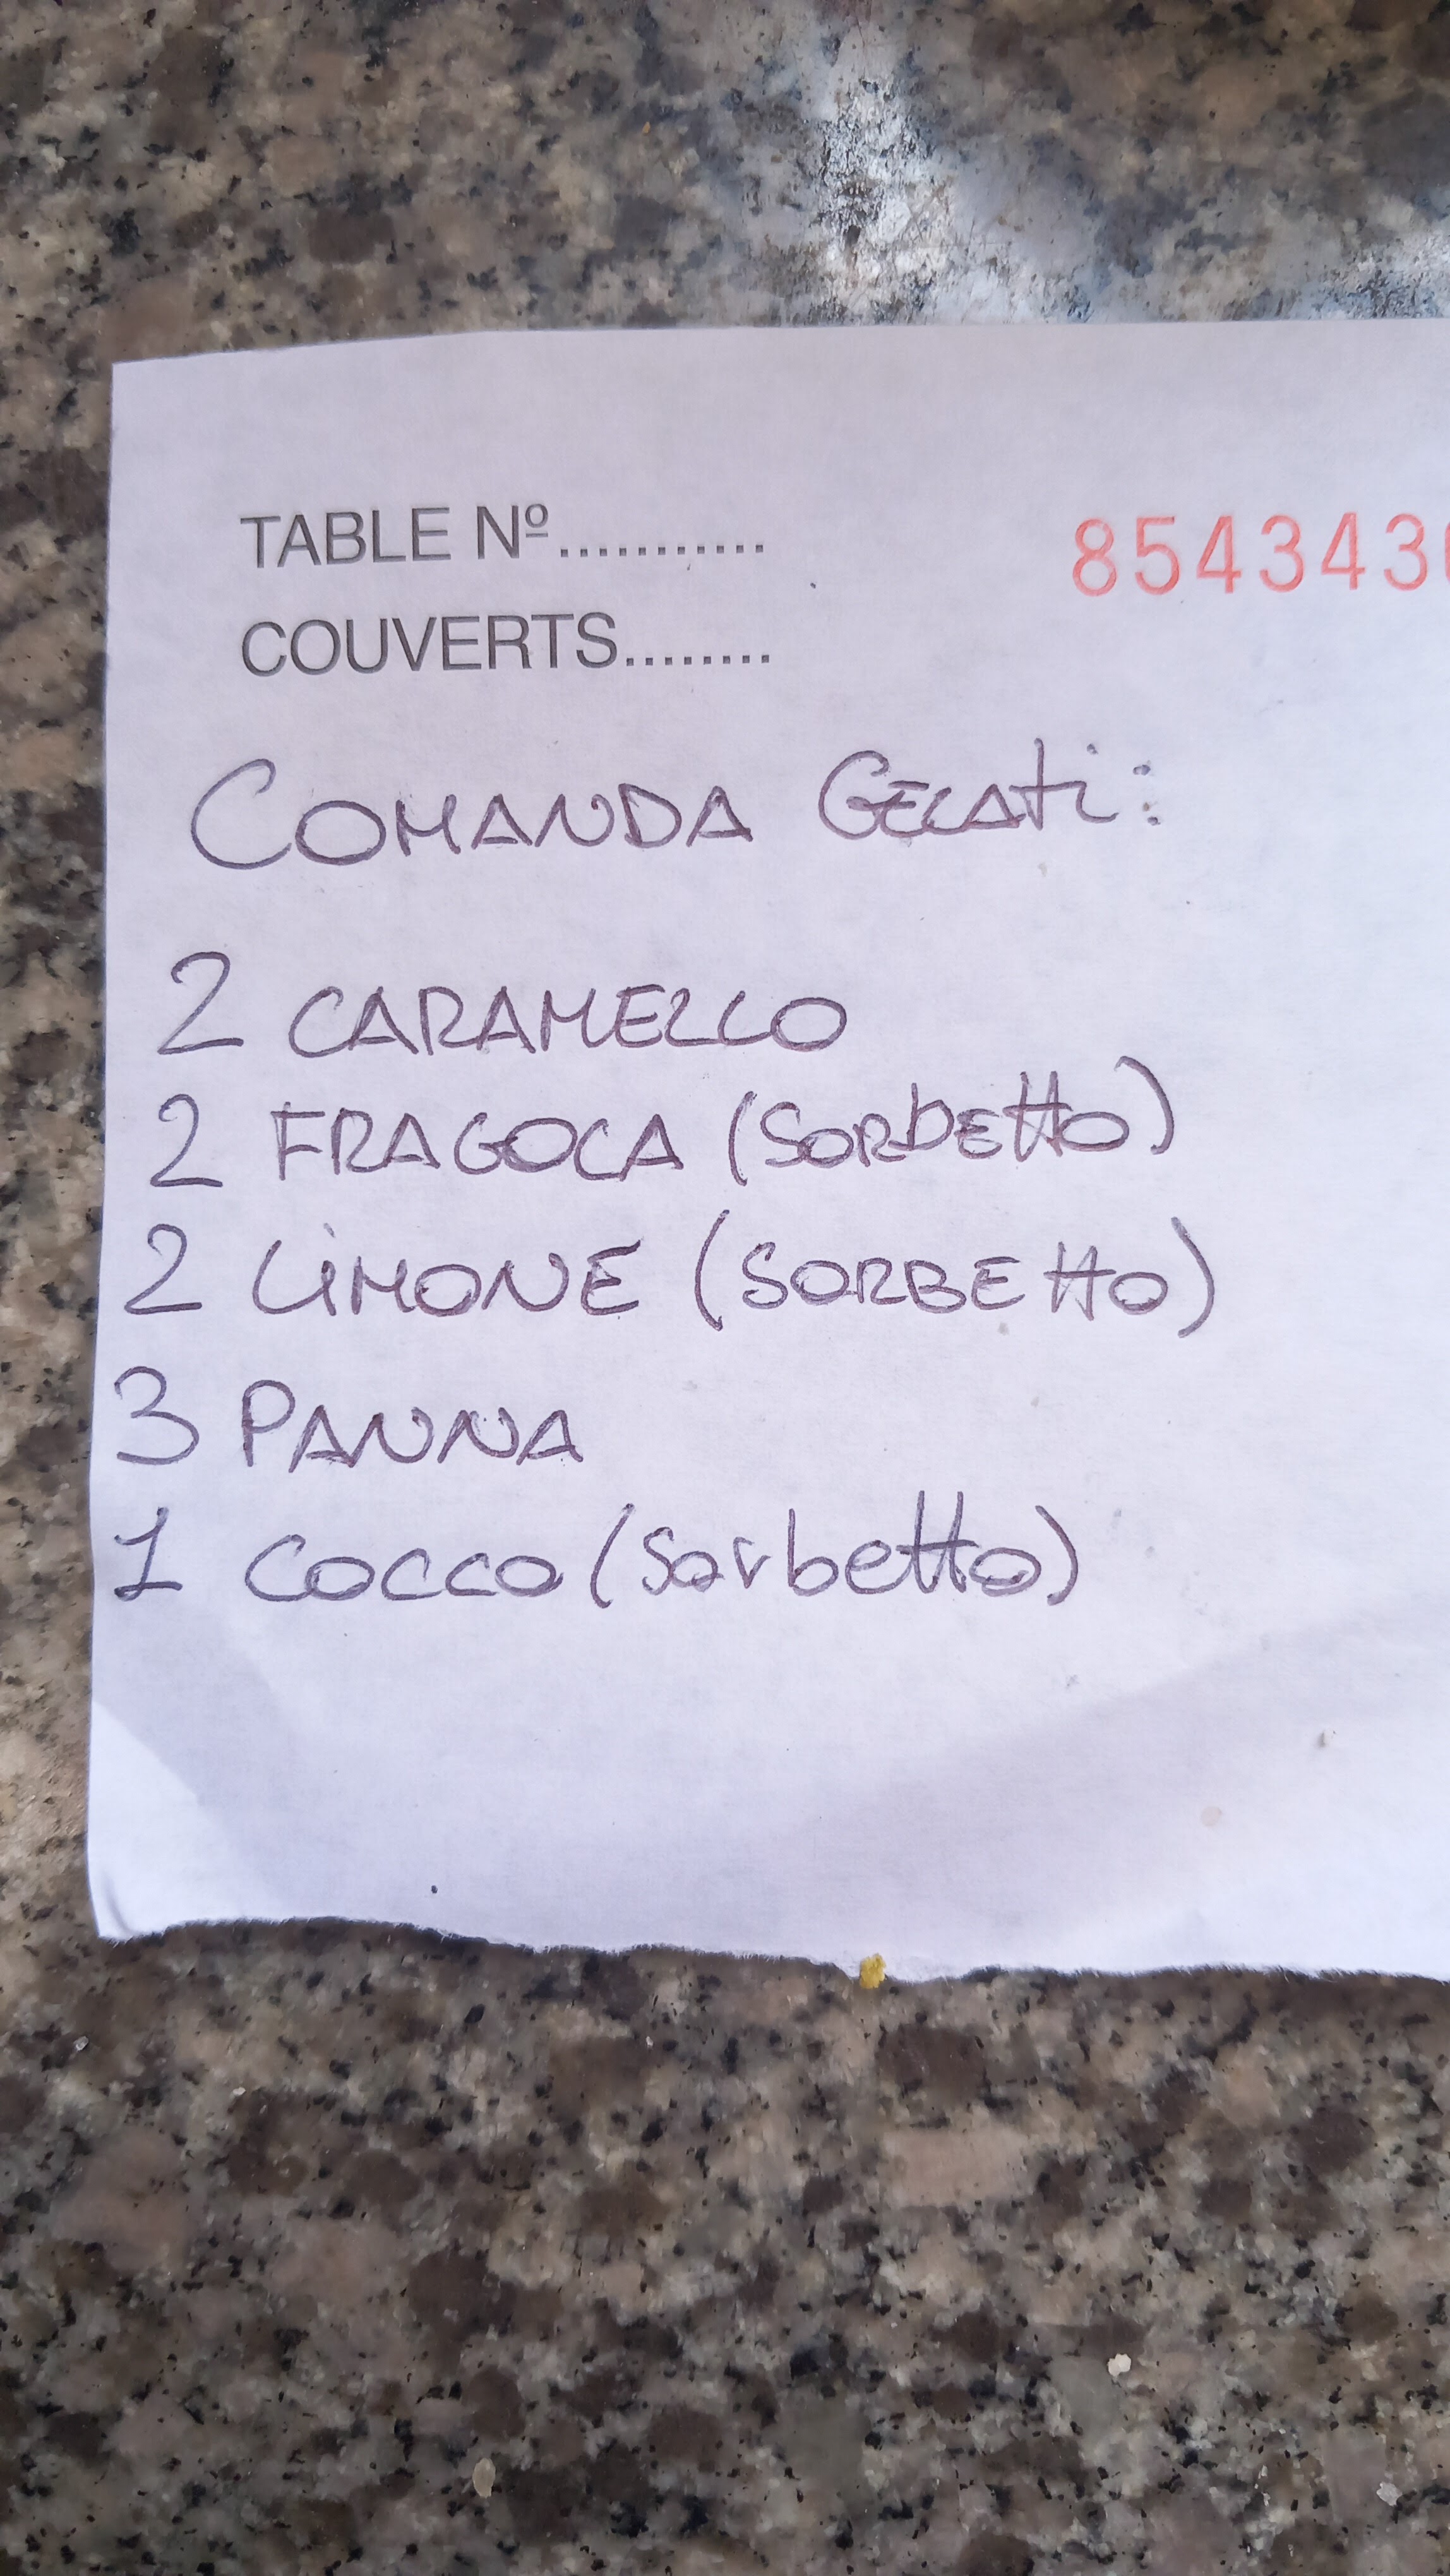 TABLE Nº........... 854343
COUVERTS........
COMANDA GELATi:
2 CARAMELLO
2 FRAGOLA (SORbETTO)
2 LiMONE (SORBETTO)
3 PANNA
1 COCCO (Sorbetto)